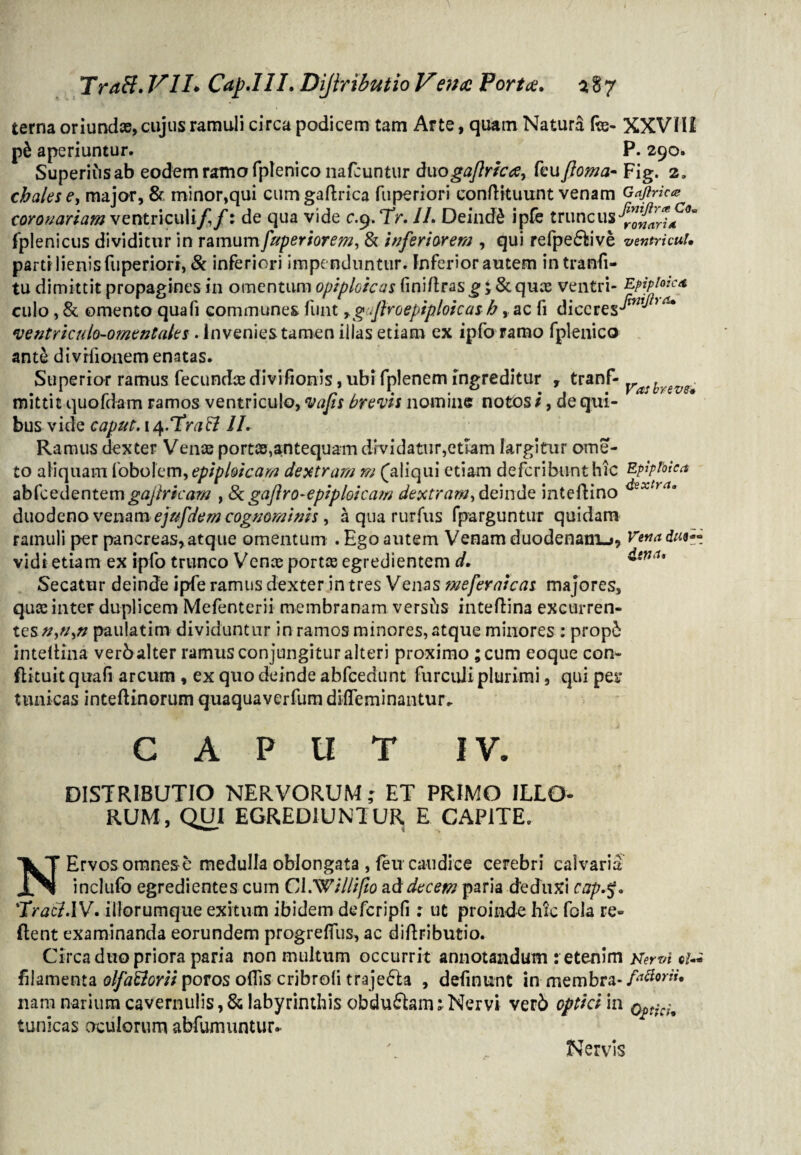 Tract. VII. Cap. III. Distributio Venæ Portæ. 287
terna oriundæ, cujus ramuli circa podicem tam Arte, quam Natura sæ- XXVIII
pè aperiuntur. P. 290.
Superiùs ab eodem ramo splenico nascuntur duo gastricæ, seu stoma- Fig. 2.
chales e, major, & minor, qui cum gastrica superiori constituunt venam Gastricæ
coronariam ventriculi f,f: de qua vide c.9. Tr. II. Deindè ipse truncus sinistræ Co-
ronaria
splenicus dividitur in ramum superiorem, & inferiorem , qui respectivè ventricul.
parti lienis superiori, & inferiori impenduntur. Inferior autem in transi-
tu dimittit propagines in omentum opiploicas sinistras g; & quæ ventri- Epiploica
culo, & omento quasi communes sunt, gastroepiploicas h, ac si diceres sinistra.
ventriculo-omentales . Invenies tamen illas etiam ex ipso ramo splenico
antè divisionem enatas.
Superior ramus secundæ divisionis, ubi splenem ingreditur , trans- Vas breve.
mittit quosdam ramos ventriculo, vasis brevis nomine notos i, de qui-
bus vide caput. 14. Tract II.
Ramus dexter Venæ portæ, antequam dividatur, etiam largitur ome-
to aliquam sobolem, epiploicam dextram m (aliqui etiam describunt hìc Epiploica
abscedentem gastricam , & gastro-epiploicam dextram, deinde intestino dextra.
duodeno venam ejusdem cognominis, à qua rursus sparguntur quidam
ramuli per pancreas, atque omentum . Ego autem Venam duodenam, Vena duo-
vidi etiam ex ipso trunco Venæ portæ egredientem d. dena.
Secatur deinde ipse ramus dexter in tres Venas meseraicas majores,
quæ inter duplicem Mesenterii membranam versùs intestina excurren-
tes n,n,n paulatim dividuntur in ramos minores, atque minores : propè
intestina verò alter ramus conjungitur alteri proximo ; cum eoque con-
stituit quasi arcum , ex quo deinde abscedunt surculi plurimi, qui per
tunicas intestinorum quaquaversum disseminantur.
CAPUT IV.
DISTRIBUTIO NERVORUM; ET PRIMO ILLO-
RUM, QUI EGREDIUNTUR E CAPITE.
NErvos omnes è medulla oblongata , seu caudice cerebri calvariâ
incluso egredientes cum Cl. Willisio ad decem paria deduxi cap.5.
Tract.IV. illorumque exitum ibidem descripsi : ut proinde hìc sola re-
stent examinanda eorundem progressus, ac distributio.
Circa duo priora paria non multum occurrit annotandum : etenim Nervi ol-
filamenta olfactorii poros ossis cribrosi trajecta , desinunt in membra- factorii.
nam narium cavernulis, & labyrinthis obductam : Nervi verò optici in Optici.
tunicas oculorum absumuntur.
Nervis